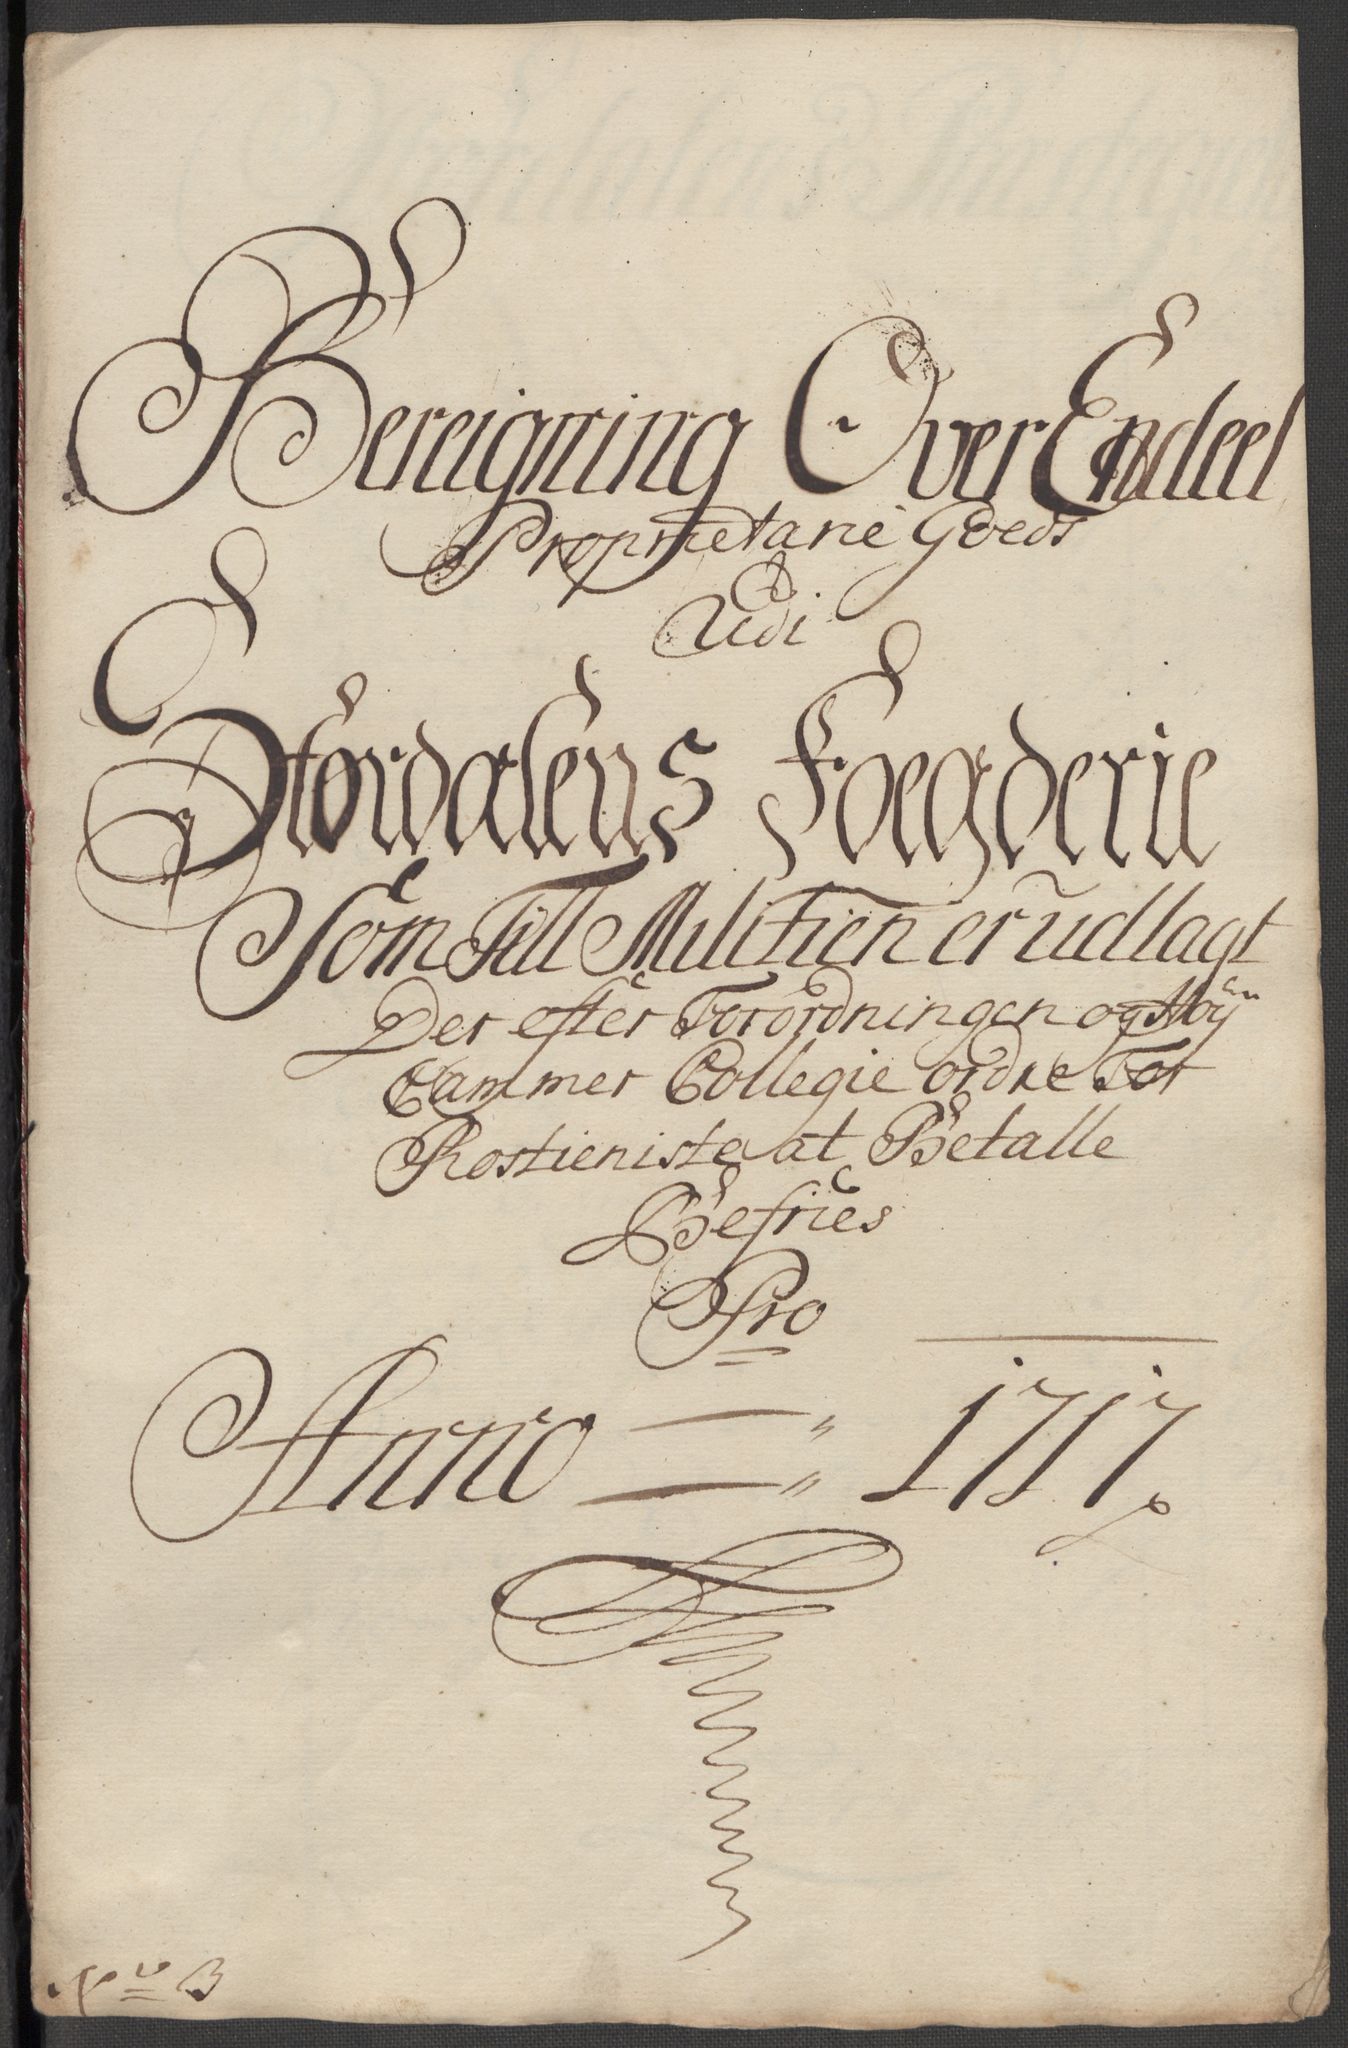 Bereigning Over Endeel
Proprietarie Goeds
Udi
Størdalens Foegderie
Som Till Militien er udlagt
Der efter Forordningen og Høÿ
Cammer Collegie ordre For
Rostieniste at Betalle
Befries
Pro
Anno 1717.